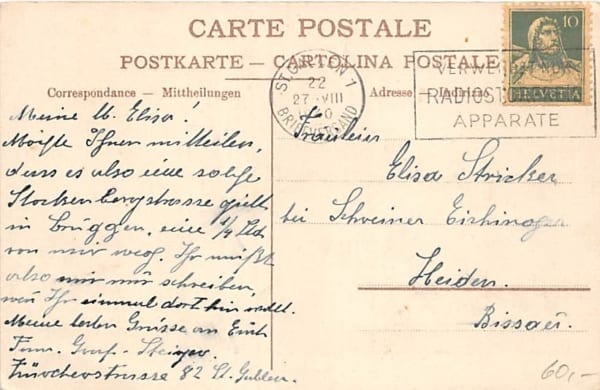 CARTE POSTALE
POSTKARTE - CARTOLINA POSTALE
Correspondance - Mittheilungen
Adresse - Indirizzo
ST. GALLEN 1
22
27. VIII
BRIEFVERSAND
10
HELVETIA
RADIOST
APPARATE
Meine l. Elisa!
Möchte Ihnen mitteilen,
dass es also eine solche
Stockenbergstrasse gibt
in Brüggen, eine 1/4 Std
von mir weg. Ihr müsst
also mir nur schreiben,
wen Ihr einmal dort hin wollt.
Meine besten Grüsse an Euch
Fam. Graf-Steiger.
Zürcherstrasse 82 St. Gallen.
Fräulein
Elisa Stricker
bei Schreiner
Heiden.
Bissau.
60,-